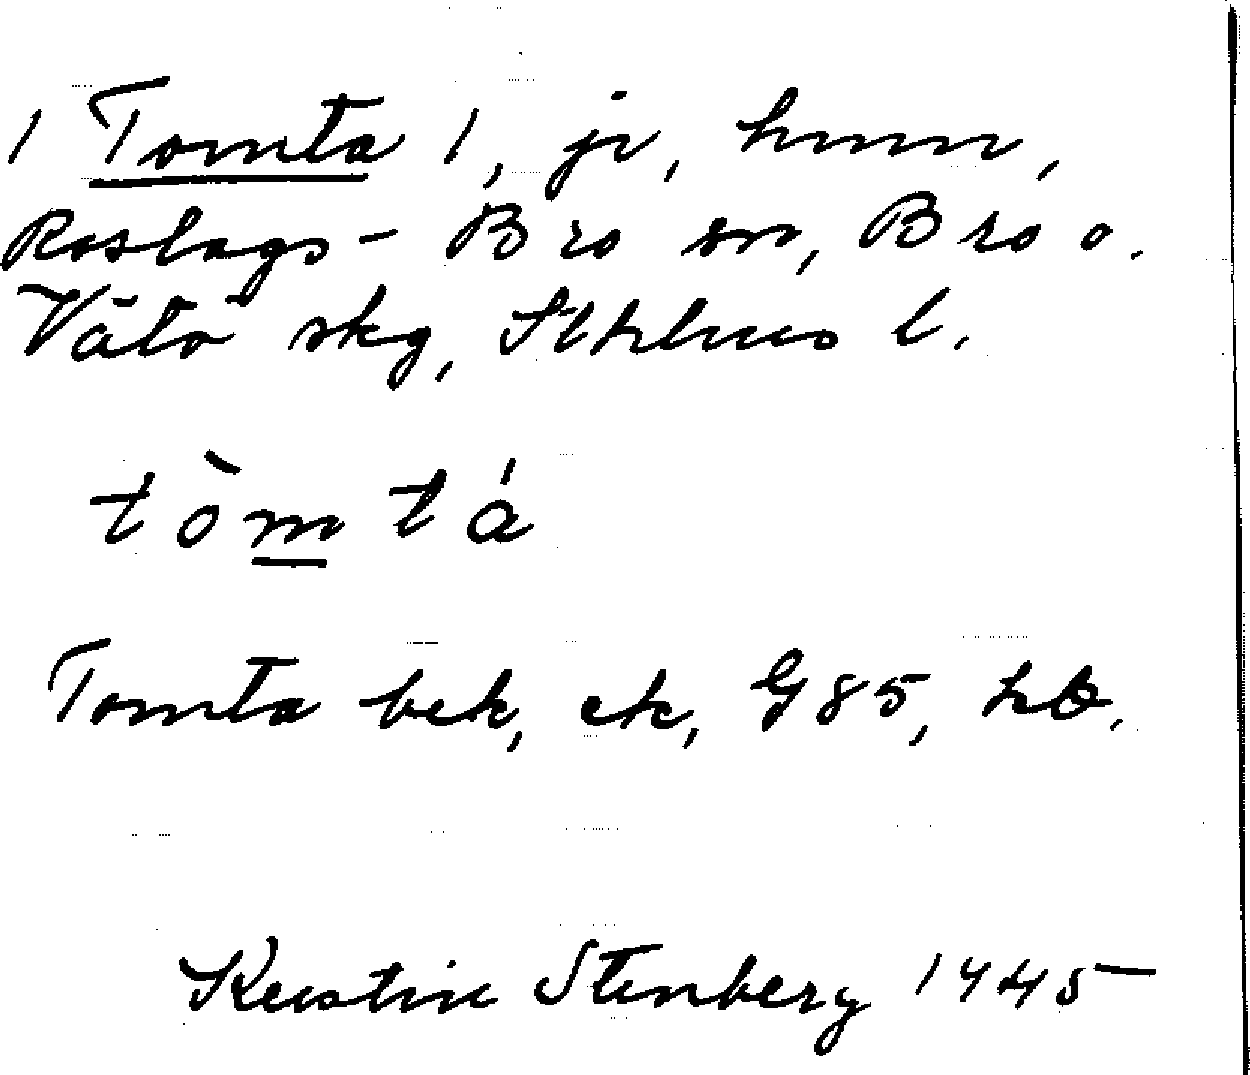 / Tomta /, jr, hmm,
Roslags-Bro sn, Bro o.
Vätö skg, Sthlms l.
tòmtá
Tomta bek, ek, G85, hb.
Kerstin Stenberg 1945